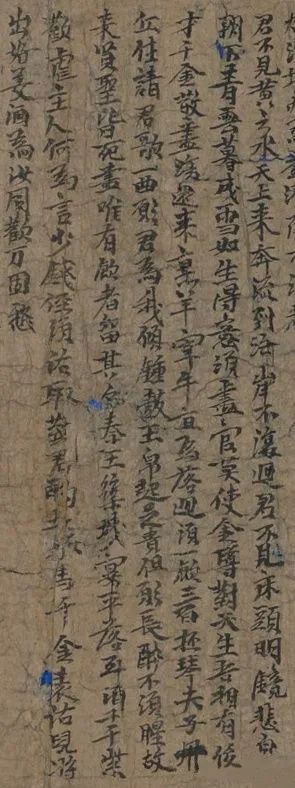 君不見黃之水天上来奔流到海岸不復迴君不見床頭明鏡悲白
朝下青雲暮成雪如生得意須盡官莫使金罇對天生吾祖有俊
才千金散盡還来烹羊宰牛且為落迴須一飲三百盃琴夫子冊
丘生請君歌一曲願君為我傾鍾鼓玉帛豈足貴但願長醉不須醒故
来賢聖皆死盡唯有飲者留其名秦王築城宴平落斗酒千千紫
歡虐主人何為言少錢徑須沽取對君酌馬千金裘沽兒將
出換美酒為汝同歡万固愁